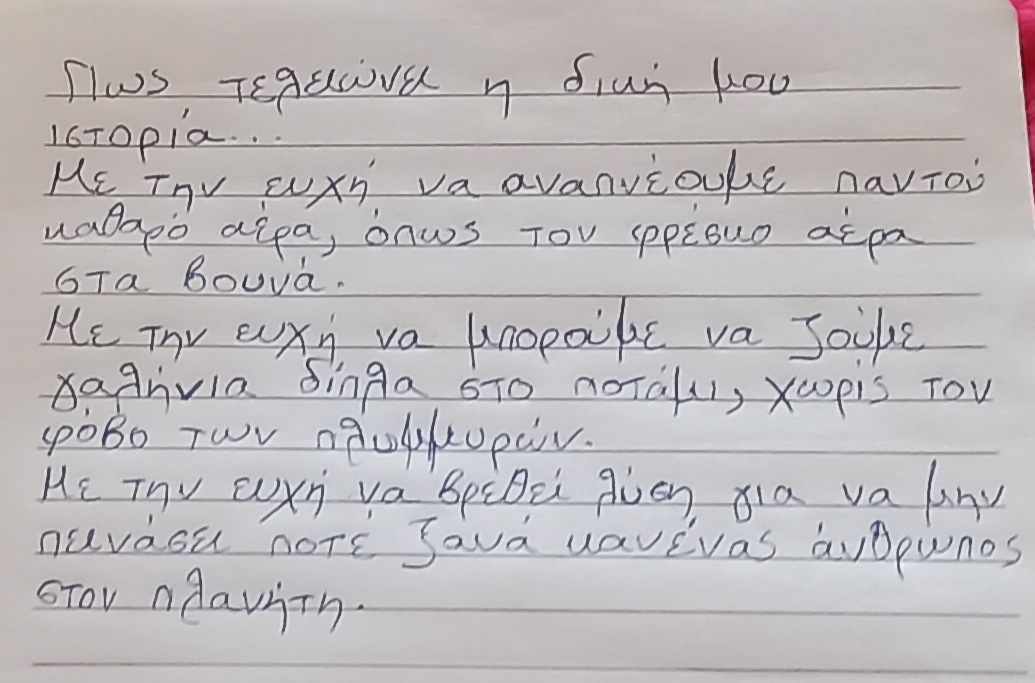 Πως τελειώνει η δική μου
ιστορία...
Με την ευχή να αναπνέουμε παντού
καθαρό αέρα, όπως τον φρέσκο αέρα
στα βουνά.
Με την ευχή να μπορούμε να ζούμε
γαλήνια δίπλα στο ποτάμι, χωρίς τον
φόβο των πλυμμυρών.
Με την ευχή να βρεθεί λύση για να μην
πεινάσει ποτέ ξανά κανένας άνθρωπος
στον πλανήτη.